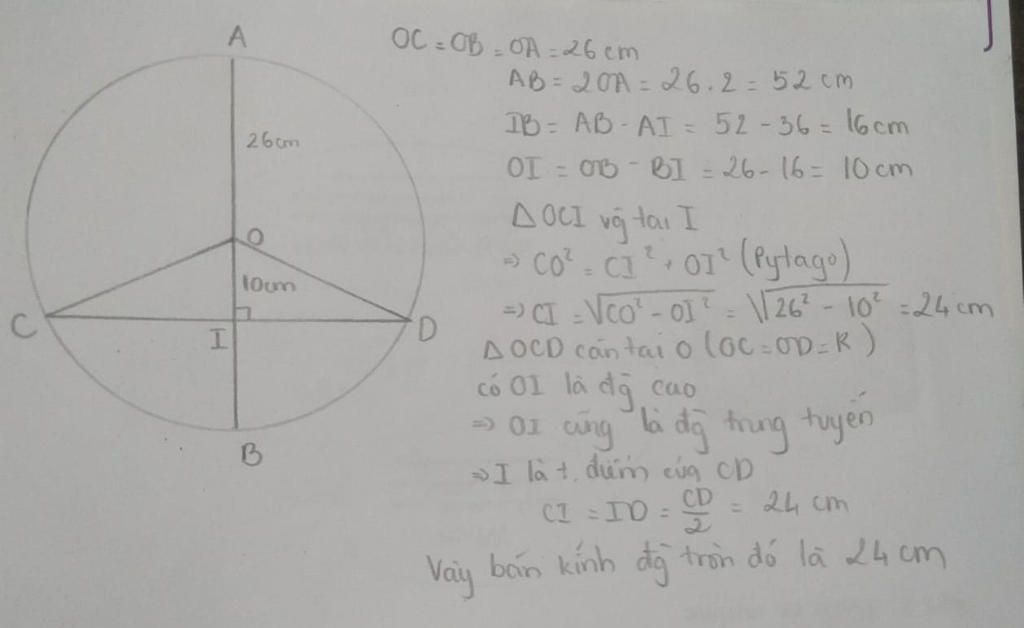 A
26cm
O
10cm
C
I
D
B
OC = OB = OA = 26 cm
AB = 2OA = 26 . 2 = 52 cm
IB = AB - AI = 52 - 36 = 16 cm
OI = OB - BI = 26 - 16 = 10 cm
△OCI vg tai I
⇒ CO² = CI² + OI² (Pytago)
⇒ CI = √CO² - OI² = √26² - 10² = 24 cm
△OCD cân tai O (OC = OD = R)
có OI là đg cao
⇒ OI cũng là đg trung tuyến
⇒ I là t. điểm của CD
CI = ID = CD/2 = 24 cm
Vậy bán kính đg tròn đó là 24 cm